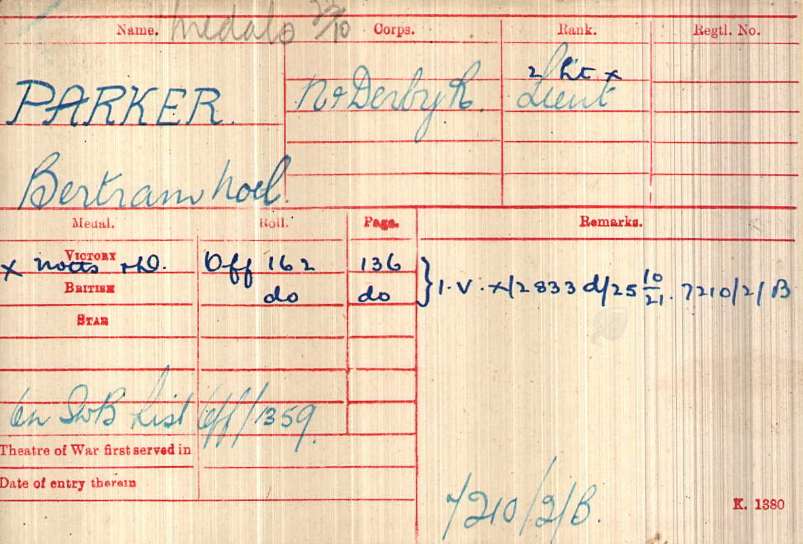 Medals
Name. Corps. Rank. Regtl. No.
2/Lt x
PARKER. N & Derby R. Lieut
Bertram Noel.
Medal. Roll. Page. Remarks.
VICTORY
x Notts & D. Off 162 136 } I.V. x/2833 d/25 10/21. 7210/2/B
BRITISH do do
STAR
On SWB List Off/1359.
Theatre of War first served in
Date of entry therein
7210/2/B.
K. 1380